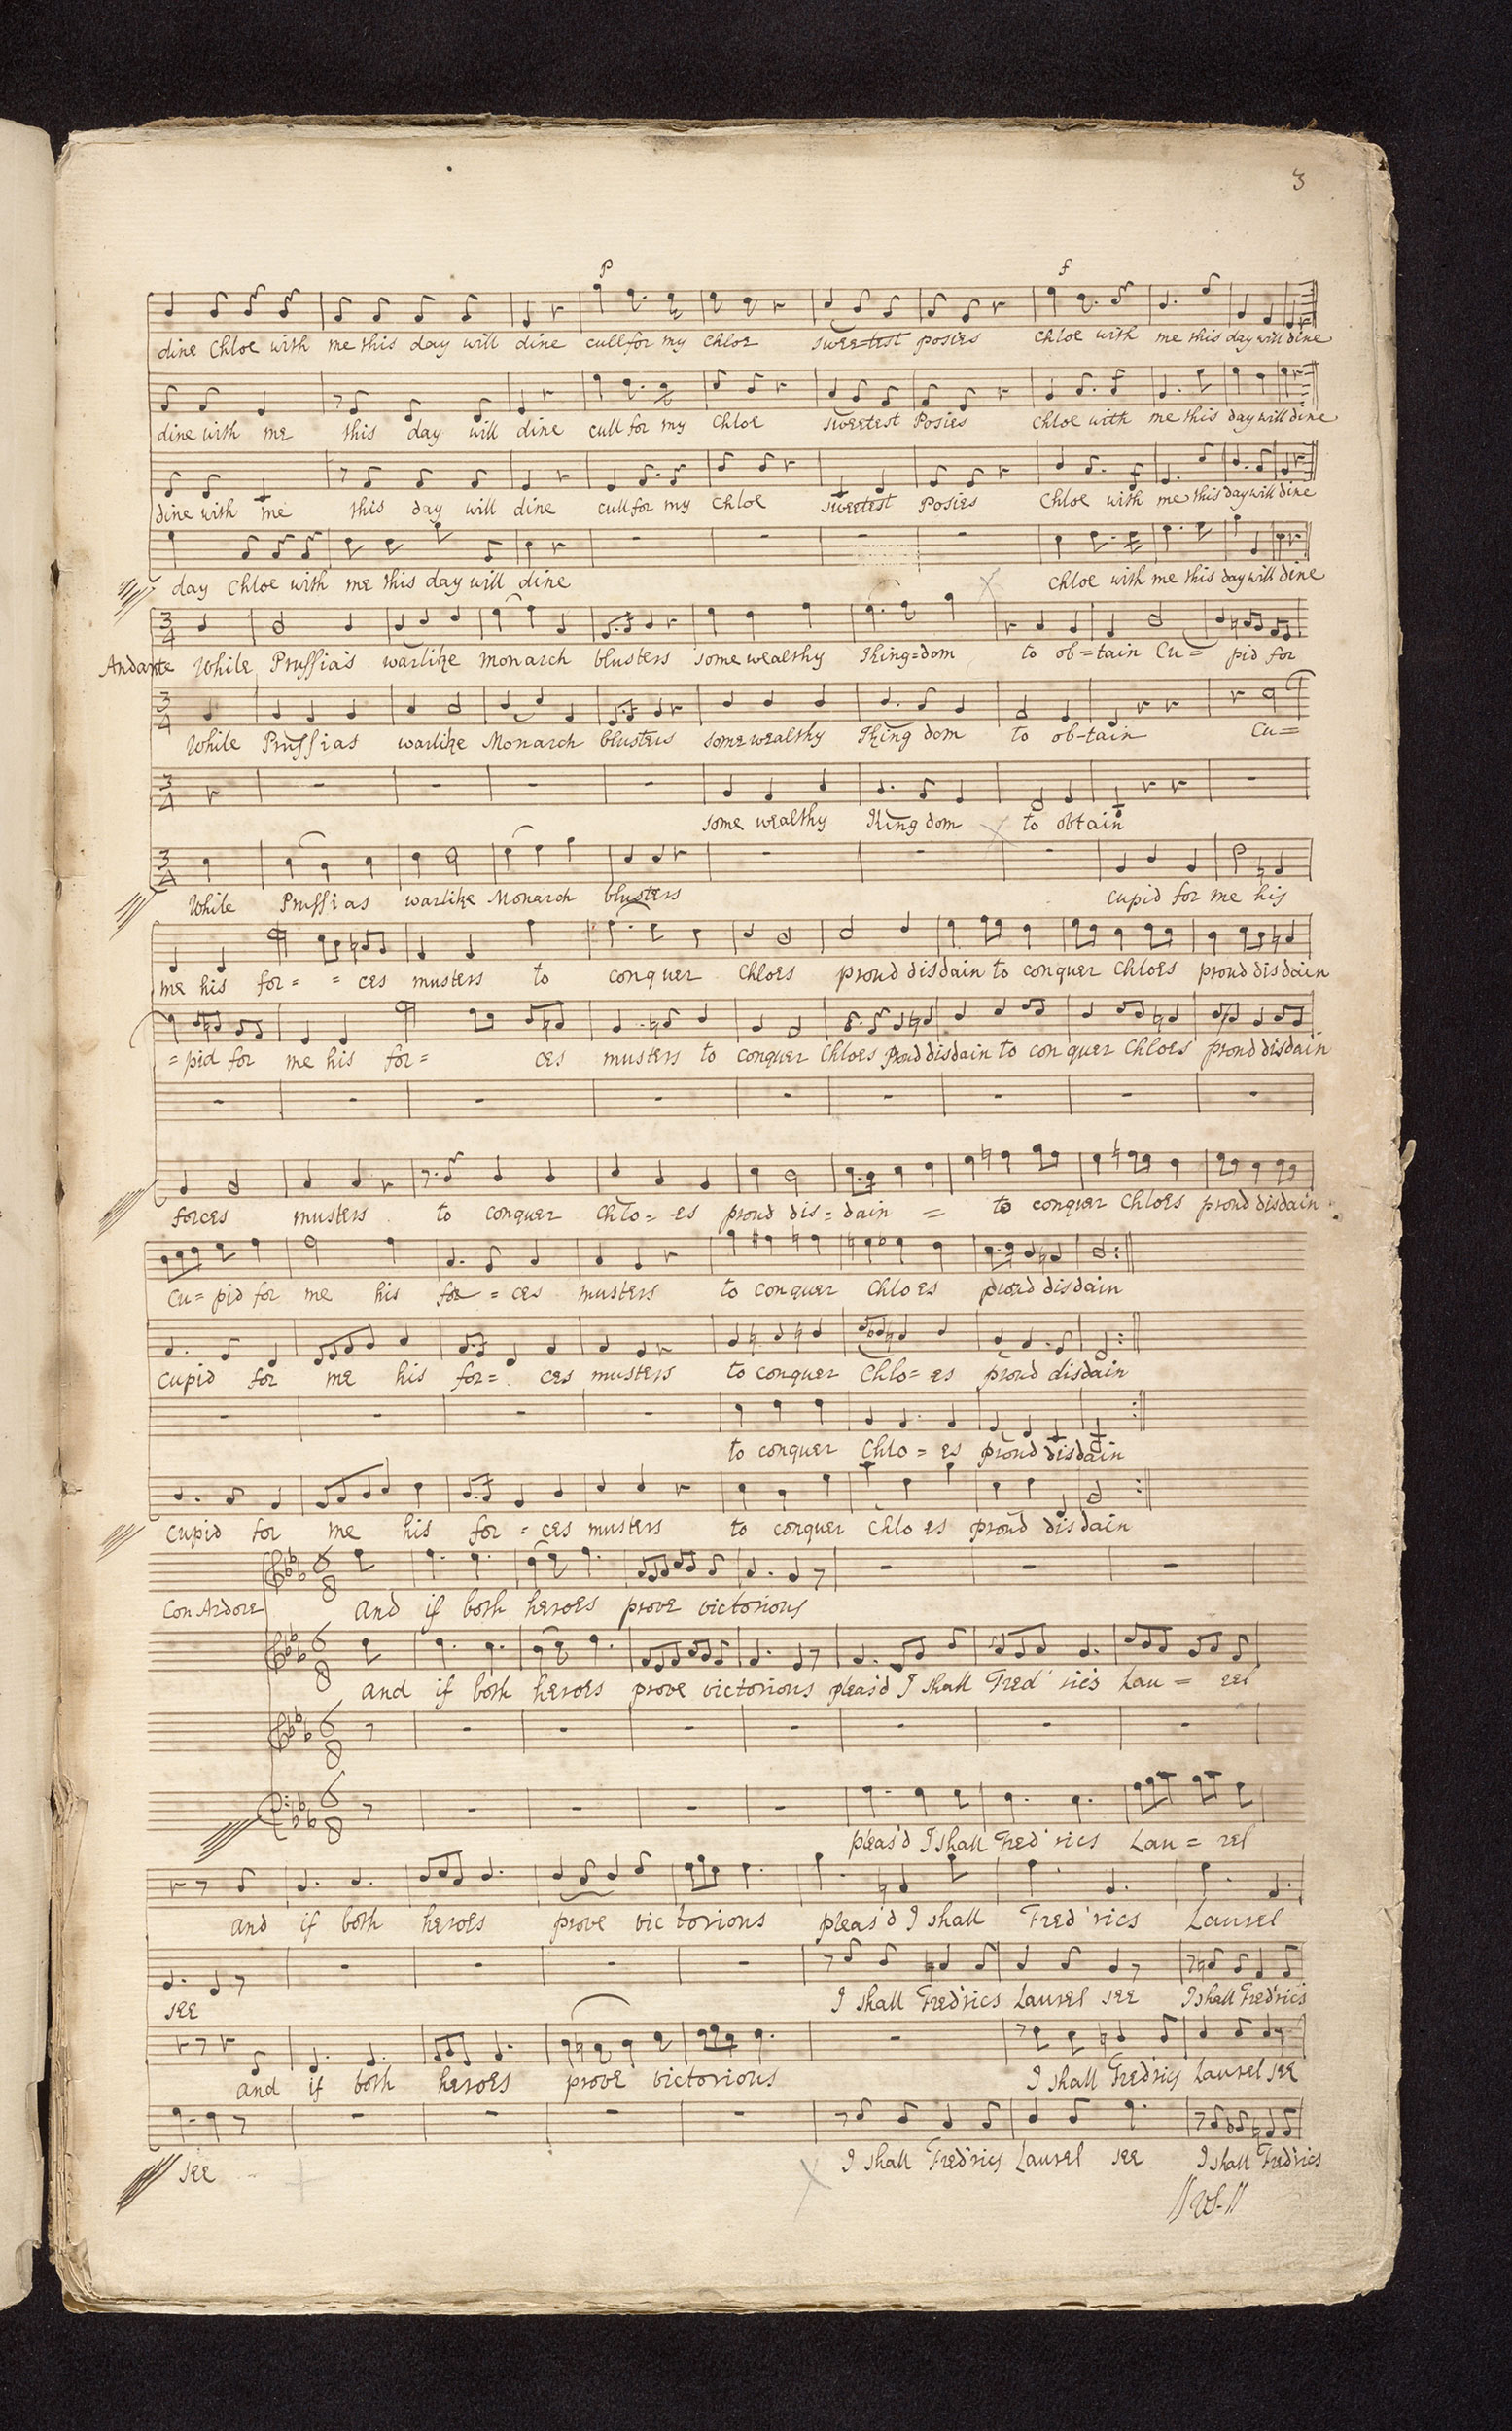 3
p f
dine Chloe with me this day will dine cull for my Chloe sweetest posies Chloe with me this day will dine
dine with me this day will dine cull for my Chloe sweetest Posies Chloe with me this day will dine
dine with me this day will dine cull for my Chloe sweetest Posies Chloe with me this day will dine
day Chloe with me this day will dine Chloe with me this day will dine
3 4
Andante While Prussia's warlike monarch blusters some wealthy King=dom to ob=tain Cu= pid for
3 4
While Prussias warlike Monarch blusters some wealthy King dom to ob-tain Cu=
3 4
some wealthy King dom to obtain
3 4
While Prussias warlike Monarch blusters cupid for me his
me his for= = ces musters to conquer Chloes proud disdain to conquer Chloes proud disdain
= pid for me his for= ces musters to conquer Chloes Proud disdain to conquer Chloes proud disdain
forces musters to conquer Chlo= es proud dis= dain = to conquer Chloes proud disdain
Cu= pid for me his for = ces musters to conquer Chloes proud disdain
cupid for me his for= ces musters to conquer Chlo= es proud disdain
to conquer Chlo= es proud disdain
cupid for me his for = ces musters to conquer Chlo es proud disdain
6 8
Con Ardore and if both heroes prove victorious
6 8
and if both heroes prove victorious pleas'd I shall Fred'rics Lau= rel
6 8
6 8
pleas'd I shall Fred'rics Lau= rel
and if both heroes prove victorious pleas'd I shall Fred'rics Laurel
see I shall Fred'rics Laurel see I shall Fred'rics
and if both heroes prove victorious I shall Fred'rics Laurel see
see I shall Fred'rics Laurel see I shall Fred'rics